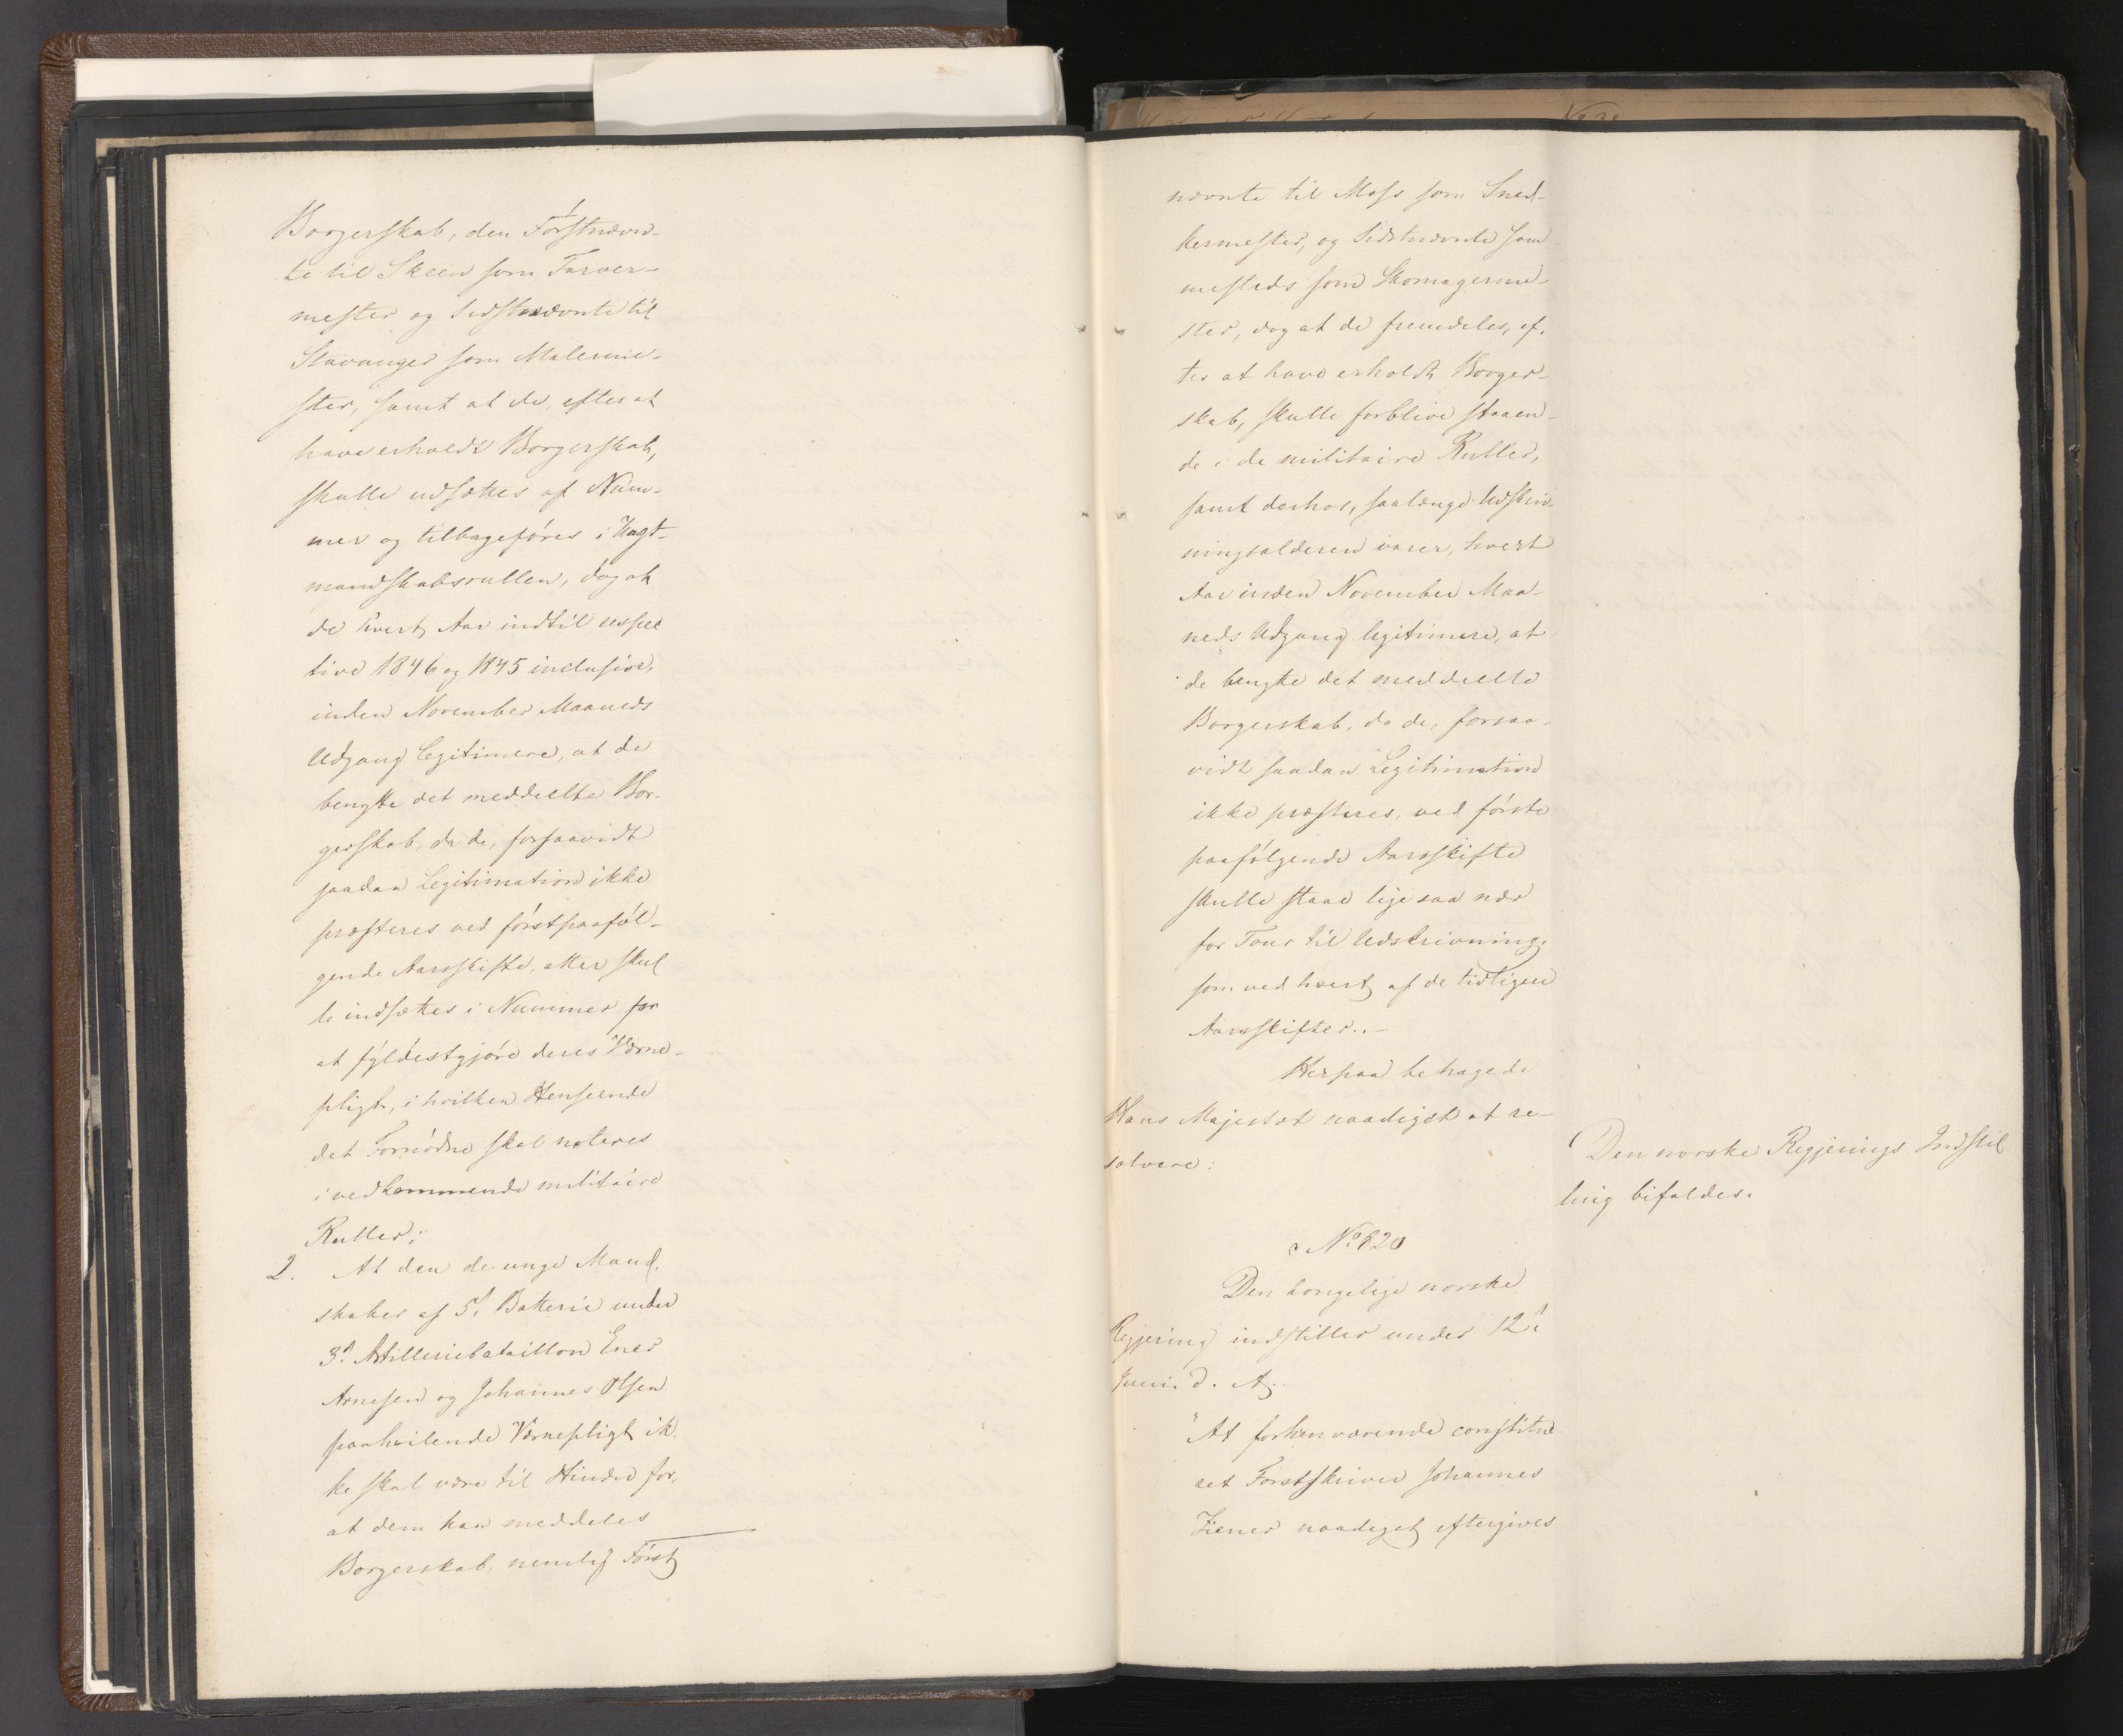 Borgerskab, den Förstnævn-
te til Skeen som Farver-
mester og Sidstnævnte til
Stavanger som Malerme-
ster, samt at de, efter at
have erholdt Borgerskab,
skulle udsættes af Num-
mer og tilbageföres i Ungt-
mandskabsrullen, dog at
de hvert Aar indtil respec
tive 1846 og 1845 inclusive,
inden November Maaneds
Udgang legitimere, at de
benytte det meddeelte Bor-
gerskab, da de, forsaavidt
saadan Legitimation ikke
præsteres ved förstpaaföl-
gende Aarsskifte, atter skul
le indsættes i Nummer for
at fyldestgjöre deres Værne-
pligt, i hvilken Henseende
det Fornödne skal noteres
i vedkommende militaire
Ruller;
2. At den de unge Mand-
skaber af 5te Batterie under
3die Artilleriebataillon Ener
Arnesen og Johannes Olsen
paahvilende Værnepligt ik-
ke skal være til Hinder for,
at dem kan meddeles
Borgerskab, nemlig Först
nævnte til Moss som Sned-
kermester, og Sidstnævnte sam-
mesteds som Skomagerme-
ster, dog at de fremdeles, ef-
ter at have erholdt Borger-
skab, skulle forblive staaen-
de i de militaire Ruller,
samt derhos, saalænge Udskriv-
ningsalderen varer, hvert
Aar inden November Maa-
neds Udgang legitimere, at
de benytte det meddeelte
Borgerskab, da de, forsaa-
vidt saadan Legitimation
ikke præsteres, ved förste
paafölgende Aarsskifte
skulle staae ligesaa nær
for Tour til Udskrivning,
som ved hvert af de tidligere
Aarsskifter."-
Herpaa behagede
Hans Majestæt naadigst at re-
solvere:
Den norske Regjerings Indstil
ling bifaldes.
No 820
Den kongelige norske
Regjering indstiller under 12te
Juni d. A.
"At forhenværende constitue
ret Forstskriver Johannes
Ziener naadigst eftergives